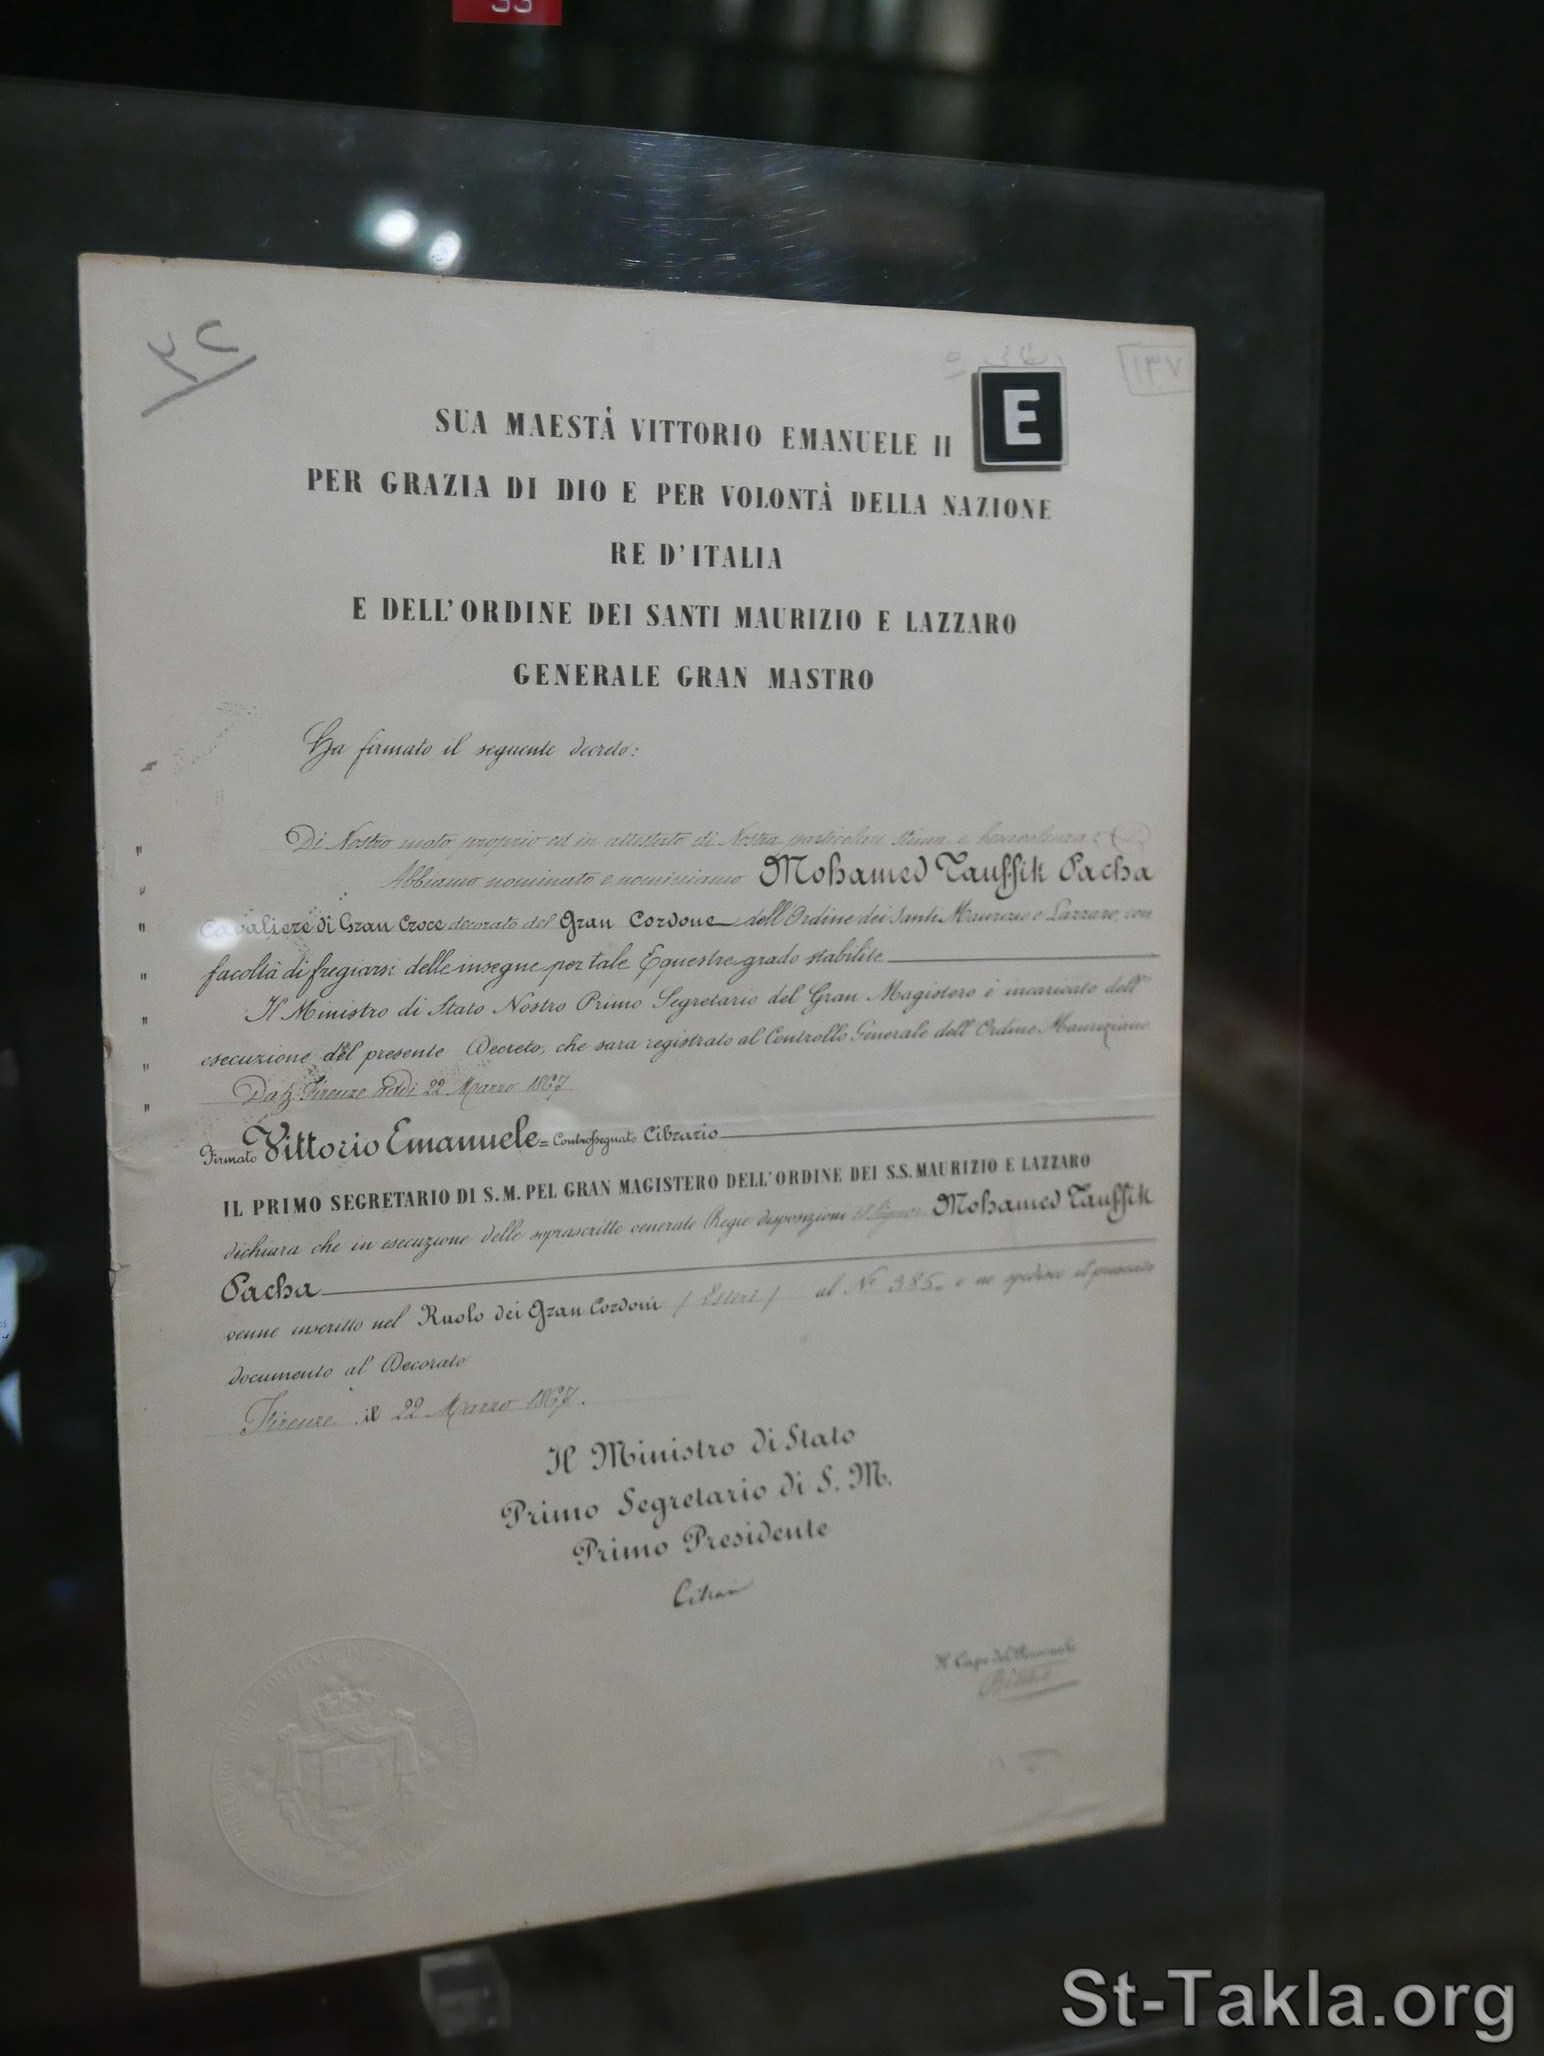 33
٣٢
١٣٧
E
SUA MAESTÀ VITTORIO EMANUELE II
PER GRAZIA DI DIO E PER VOLONTÀ DELLA NAZIONE
RE D'ITALIA
E DELL'ORDINE DEI SANTI MAURIZIO E LAZZARO
GENERALE GRAN MASTRO
Ha firmato il seguente decreto:
Di Nostro moto proprio ed in attestato di Nostra particolare stima e benevolenza
Abbiamo nominato e nominiamo Mohamed Tauffik Pacha
Cavaliere di Gran Croce decorato del Gran Cordone dell'Ordine dei Santi Maurizio e Lazzaro, con
facoltà di fregiarsi delle insegne per tale Equestre grado stabilite
Il Ministro di Stato Nostro Primo Segretario del Gran Magistero è incaricato dell'
esecuzione del presente Decreto, che sara registrato al Controllo Generale dell'Ordine Mauriziano
Dat. Firenze addi 22 Marzo 1867
Firmato Vittorio Emanuele = Controssegnato Cibrario
IL PRIMO SEGRETARIO DI S.M. PEL GRAN MAGISTERO DELL'ORDINE DEI S.S. MAURIZIO E LAZZARO
dichiara che in esecuzione delle soprascritte venerate Regie disposizioni il Signor Mohamed Tauffik
Pacha
venne inscritto nel Ruolo dei Gran Cordoni (Esteri) al N° 385. e ne spedisce il presente
documento al Decorato
Firenze, il 22 Marzo 1867.
Il Ministro di Stato
Primo Segretario di S. M.
Primo Presidente
Cibrario
Il Capo del Personale
St-Takla.org